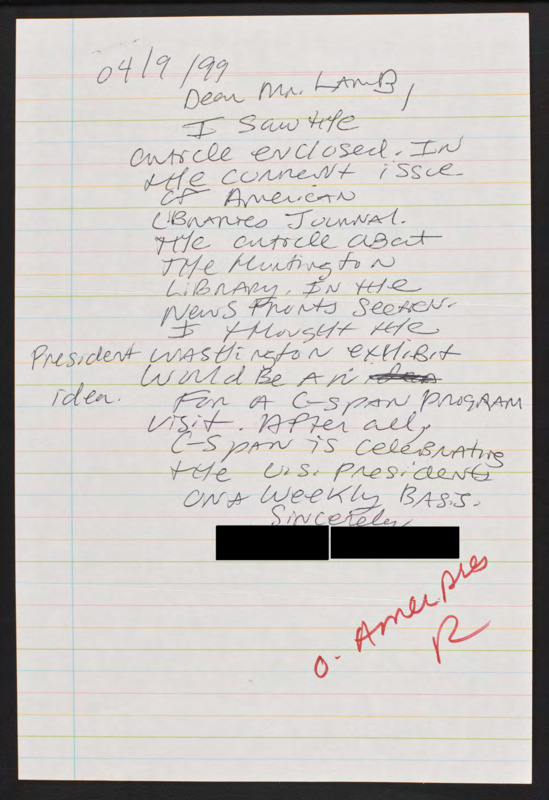 04/9/99
Dear Mr. Lamb,
I saw the
articele enclosed. In
the current issue
of American
Libraries Journal.
the article about
The Huntington
Library. In the
News Fronts Section.
I thought the
President Washington exhibit
would be an idea
idea. For a C-SPAN program
visit. After all,
C-Span is celebrating
the U.S. Presidents
on a weekly basis.
Sincerely,
O. Amer Pres
R